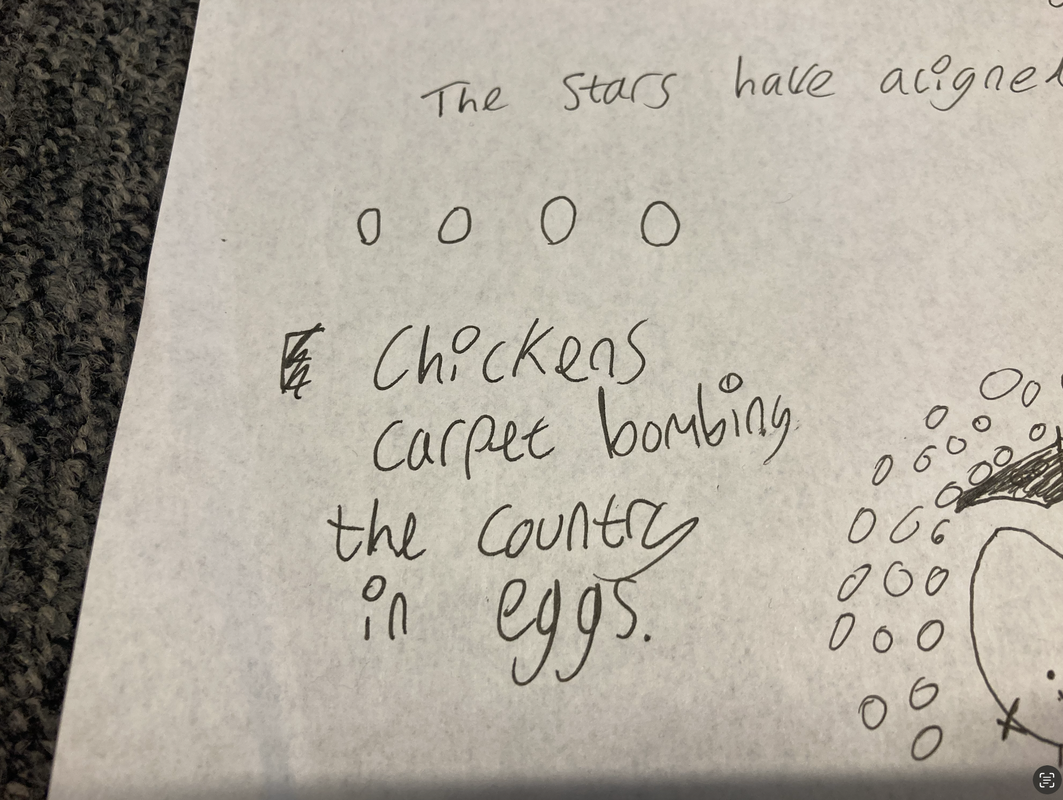 The stars have aligned
0 0 0 0
Chickens
carpet bombing
the country
in eggs.